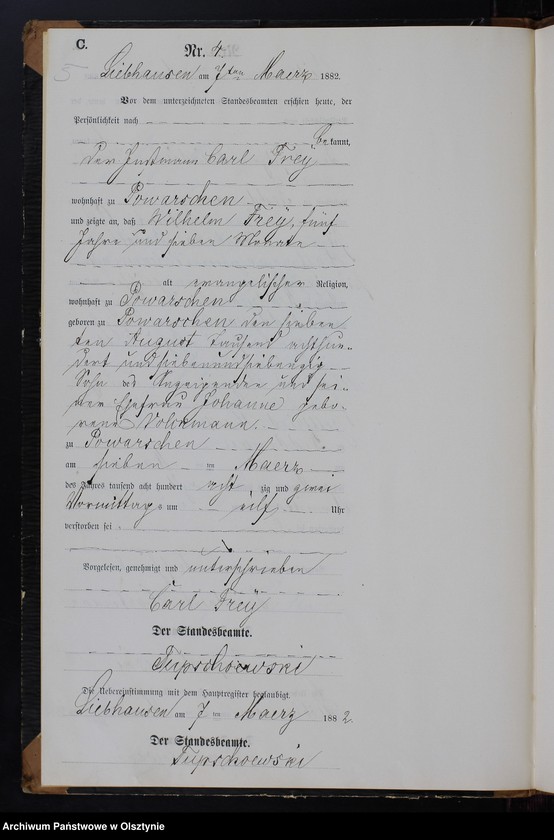 C.
Nr. 4.
5
Liebhausen am 7ten Maerz 1882.
Vor dem unterzeichneten Standesbeamten erschien heute, der
Persönlichkeit nach
bekannt,
der Instmann Carl Frey
wohnhaft zu Powarschen
und zeigte an, daß Wilhelm Frey, fünf
Jahre und sieben Monate
alt evangelischer Religion,
wohnhaft zu Powarschen
geboren zu Powarschen den sieben
ten August tausend achthun-
dert und siebenundsiebenzig
Sohn des Anzeigenden und sei-
ner Ehefrau Johanne gebo-
rene Volckmann.
zu Powarschen
am sieben ten Maerz
des Jahres tausend acht hundert acht zig und zwei
Vormittags um eilf Uhr
verstorben sei.
Vorgelesen, genehmigt und unterschrieben
Carl Frey
Der Standesbeamte.
Die Uebereinstimmung mit dem Hauptregister beglaubigt.
Liebhausen am 7ten Maerz 1882.
Der Standesbeamte.
Archiwum Państwowe w Olsztynie